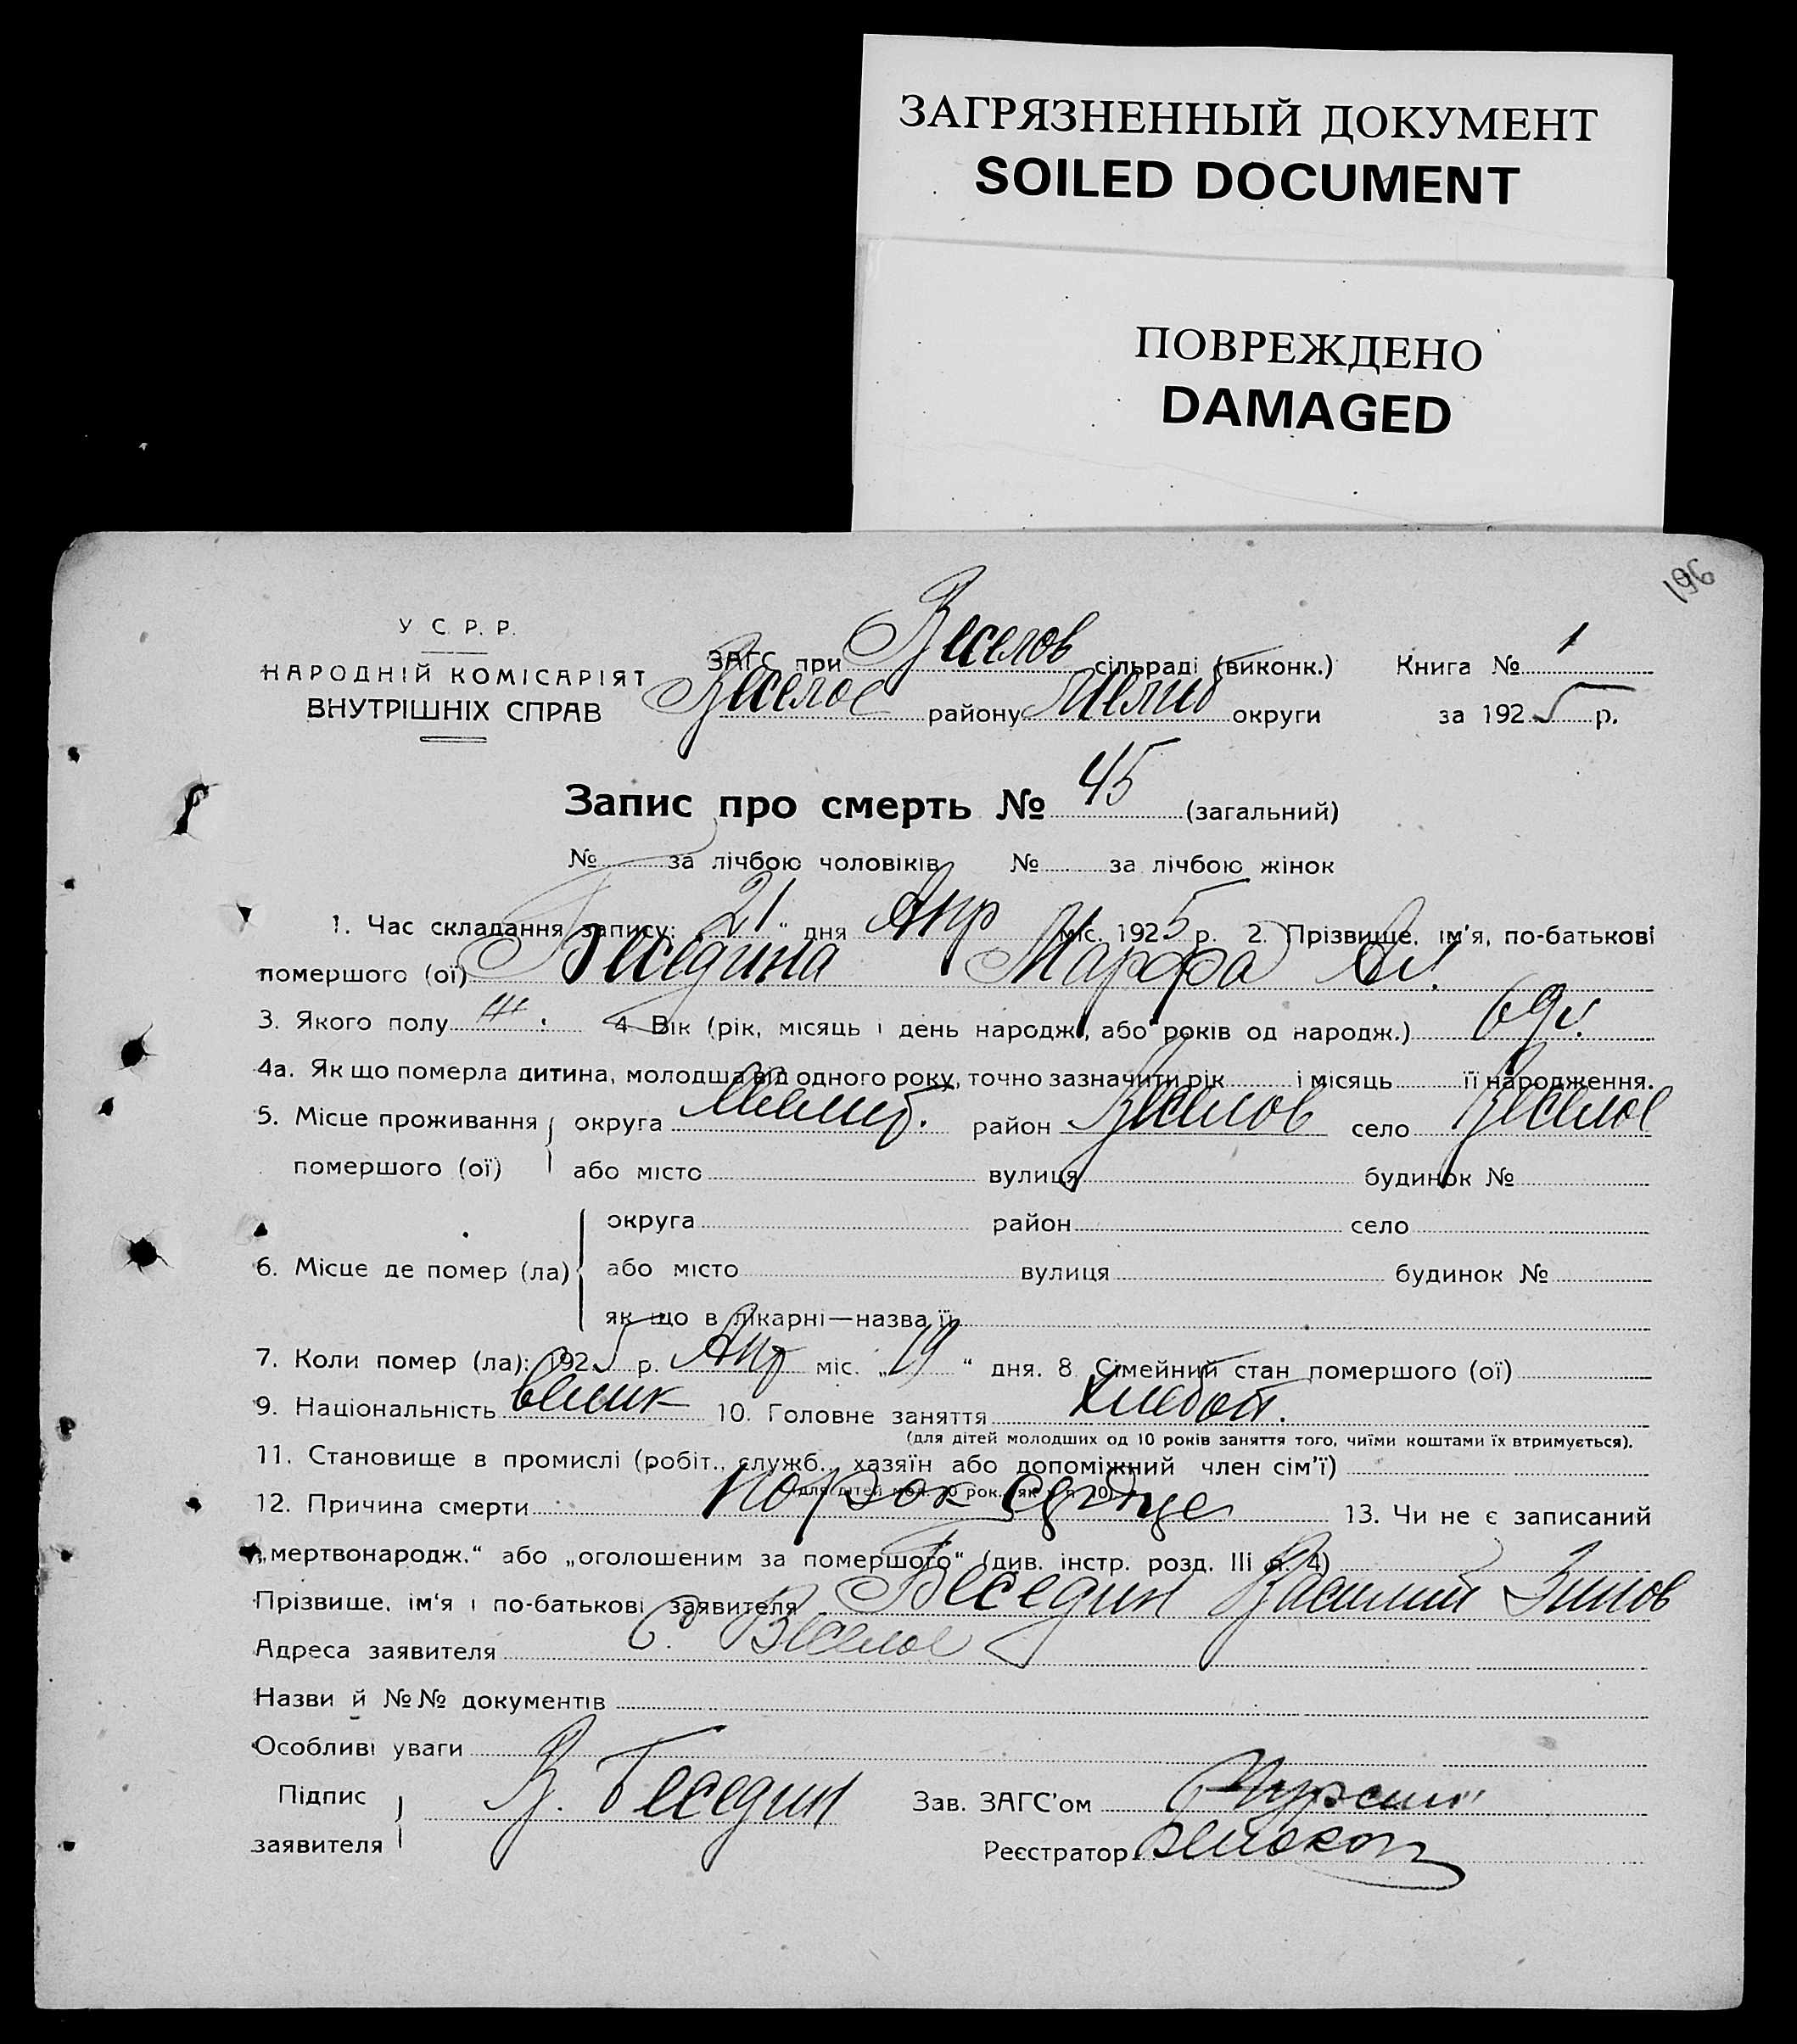 ЗАГРЯЗНЕННЫЙ ДОКУМЕНТ
SOILED DOCUMENT
ПОВРЕЖДЕНО
DAMAGED
196
У С. Р. Р.
НАРОДНІЙ КОМІСАРІЯТ
ВНУТРІШНІХ СПРАВ
ЗАГС при Веселов сільраді (виконк.) Книга № 1
Веселое району Мелит округи за 1925 р.
Запис про смерть № 45 (загальний)
№ за лічбою чоловіків № за лічбою жінок
1. Час складання запису: 21 " дня Апр міс. 1925 р. 2. Прізвище, ім'я, по-батькові
помершого (ої) Беседина Марфа
3. Якого полу Ж. 4. Вік (рік, місяць і день народж., або років од народж.) 69 л.
4а. Як що померла дитина, молодша від одного року, точно зазначити рік і місяць її народження.
5. Місце проживання округа Мелит. район Веселов село Веселое
помершого (ої) або місто вулиця будинок №
округа район село
6. Місце де помер (ла) або місто вулиця будинок №
як що в лікарні—назва її
7. Коли помер (ла): 1925 р. Апр міс. „19 “ дня. 8. Сімейний стан помершого (ої)
9. Національність велик 10. Головне заняття хлебоп.
(для дітей молодших од 10 років заняття того, чиїми коштами їх втримується).
11. Становище в промислі (робіт., служб., хазяїн або допоміжний член сім'ї)
(для дітей мол. 10 рок. як в п. 10)
12. Причина смерти порок сердца 13. Чи не є записаний
„мертвонародж.“ або „оголошеним за помершого“ (див. інстр. розд. III п. 4)
Прізвище, ім'я і по-батькові заявителя Беседин Василий Зинов
Адреса заявителя С. Веселое
Назви й №№ документів
Особливі уваги
Підпис
заявителя В. Беседин Зав. ЗАГС'ом
Реєстратор